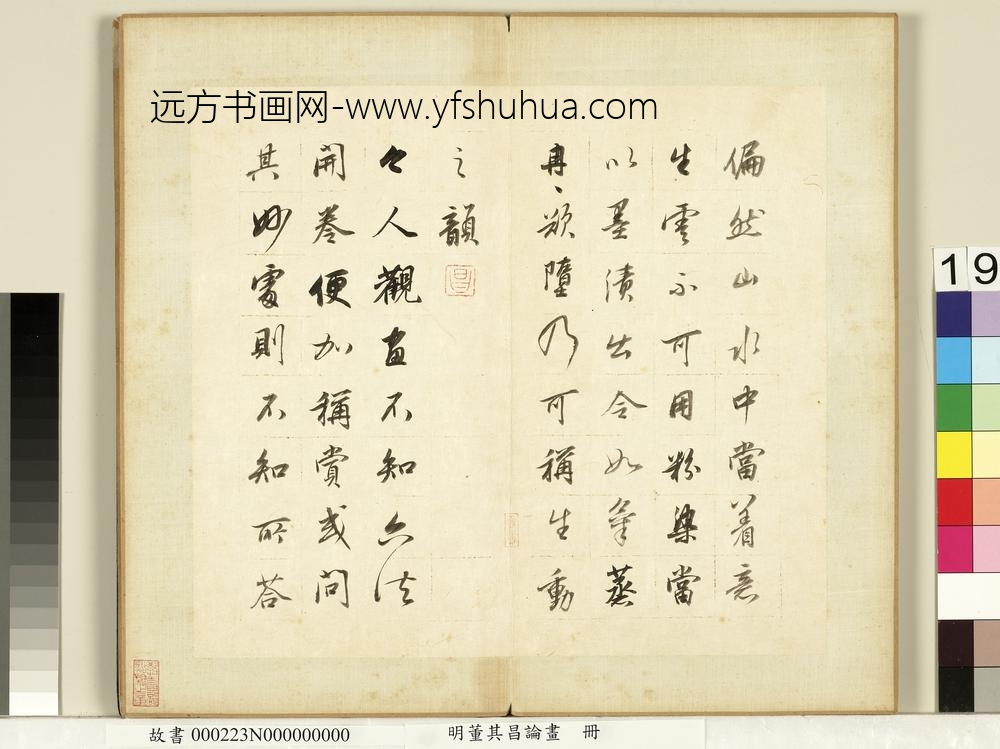 远方书画网-www.yfshuhua.com
偏然山水中當着意
生雲不可用粉染當
以墨漬出令如氣蒸
冉、欲墮乃可稱生動
之韻
今人觀畫不知六法
開卷便加稱賞或問
其妙處則不知所答
19
故書 000223N000000000
明董其昌論畫 冊